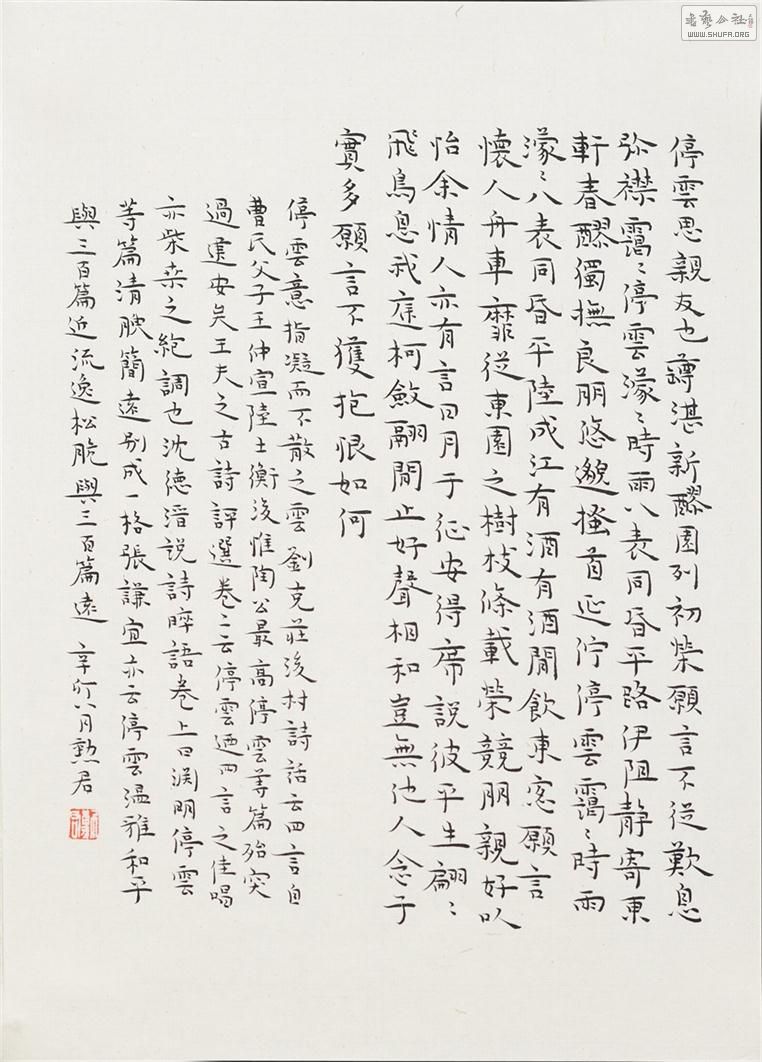 停雲思親友也罇湛新醪園列初榮願言不從歎息
弥襟靄〻停雲濛〻時雨八表同昏平路伊阻静寄東
軒春醪獨撫良朋悠邈搔首延佇停雲靄〻時雨
濛〻八表同昏平陸成江有酒有酒閒飲東窓願言
懷人舟車靡從東園之樹枝條載榮競朋親好以
怡余情人亦有言日月于征安得席說彼平生翩〻
飛鳥息我庭柯斂翮閒止好聲相和豈無他人念子
實多願言不獲抱恨如何
停雲意指凝而不散之雲劉克莊後村詩話云四言自
曹氏父子王仲宣陸士衡後惟陶公最高停雲等篇殆突
過建安矣王夫之古詩評選卷二云停雲迺四言之佳唱
亦柴桑之絕調也沈德潛説詩晬語卷上曰淵明停雲
等篇清腴簡遠别成一格張謙宜亦云停雲温雅和平
與三百篇近流逸松脆與三百篇遠 辛卯八月勲君
書藝公社
WWW.SHUFA.ORG